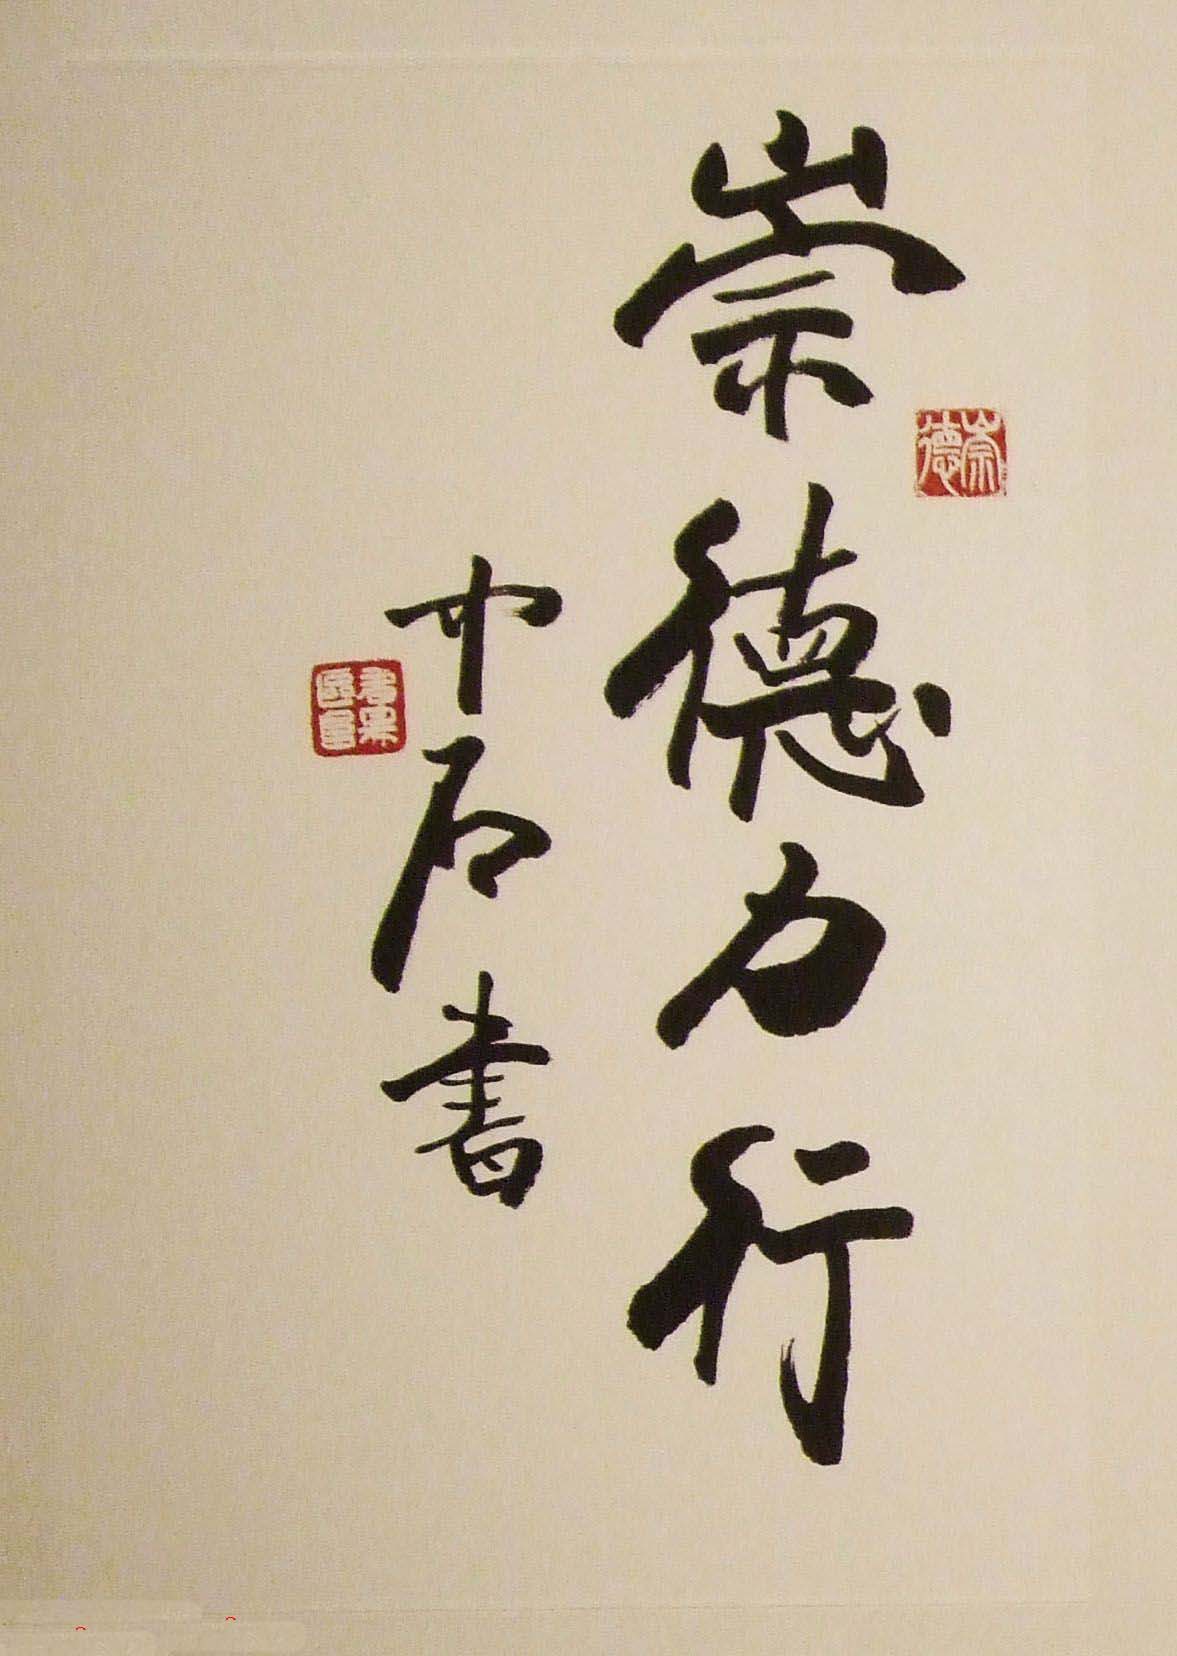 崇德力行
中石書
崇德